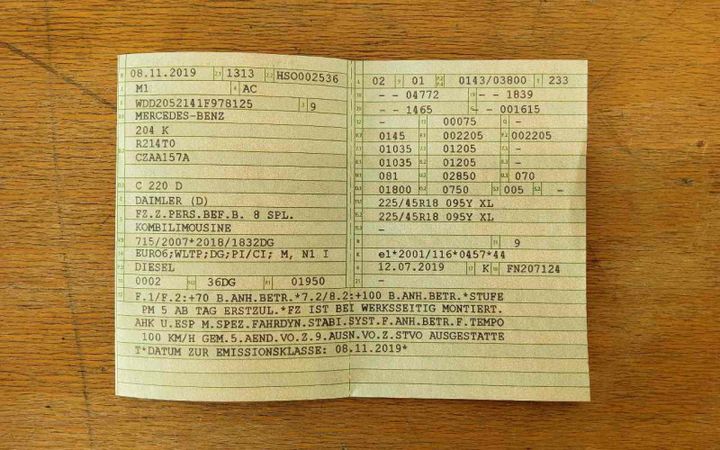 08.11.2019 1313 HSO002536
M1 AC
WDD2052141F978125 9
MERCEDES-BENZ
204 K
R214T0
CZAA157A
C 220 D
DAIMLER (D)
FZ.Z.PERS.BEF.B. 8 SPL.
KOMBILIMOUSINE
715/2007*2018/1832DG
EURO6;WLTP;DG;PI/CI; M, N1 I
DIESEL
0002 36DG 01950
02 01 0143/03800 233
- - 04772 - - 1839
- - 1465 - -001615
- 00075 -
0145 002205 002205
01035 01205 -
01035 01205 -
081 02850 070
01800 0750 005 -
225/45R18 095Y XL
225/45R18 095Y XL
-
9
e1*2001/116*0457*44
12.07.2019 K FN207124
F.1/F.2:+70 B.ANH.BETR.*7.2/8.2:+100 B.ANH.BETR.*STUFE
PM 5 AB TAG ERSTZUL.*FZ IST BEI WERKSSEITIG MONTIERT.
AHK U.ESP M.SPEZ.FAHRDYN.STABI.SYST.F.ANH.BETR.F.TEMPO
100 KM/H GEM.5.AEND.VO.Z.9.AUSN.VO.Z.STVO AUSGESTATTE
T*DATUM ZUR EMISSIONSKLASSE: 08.11.2019*